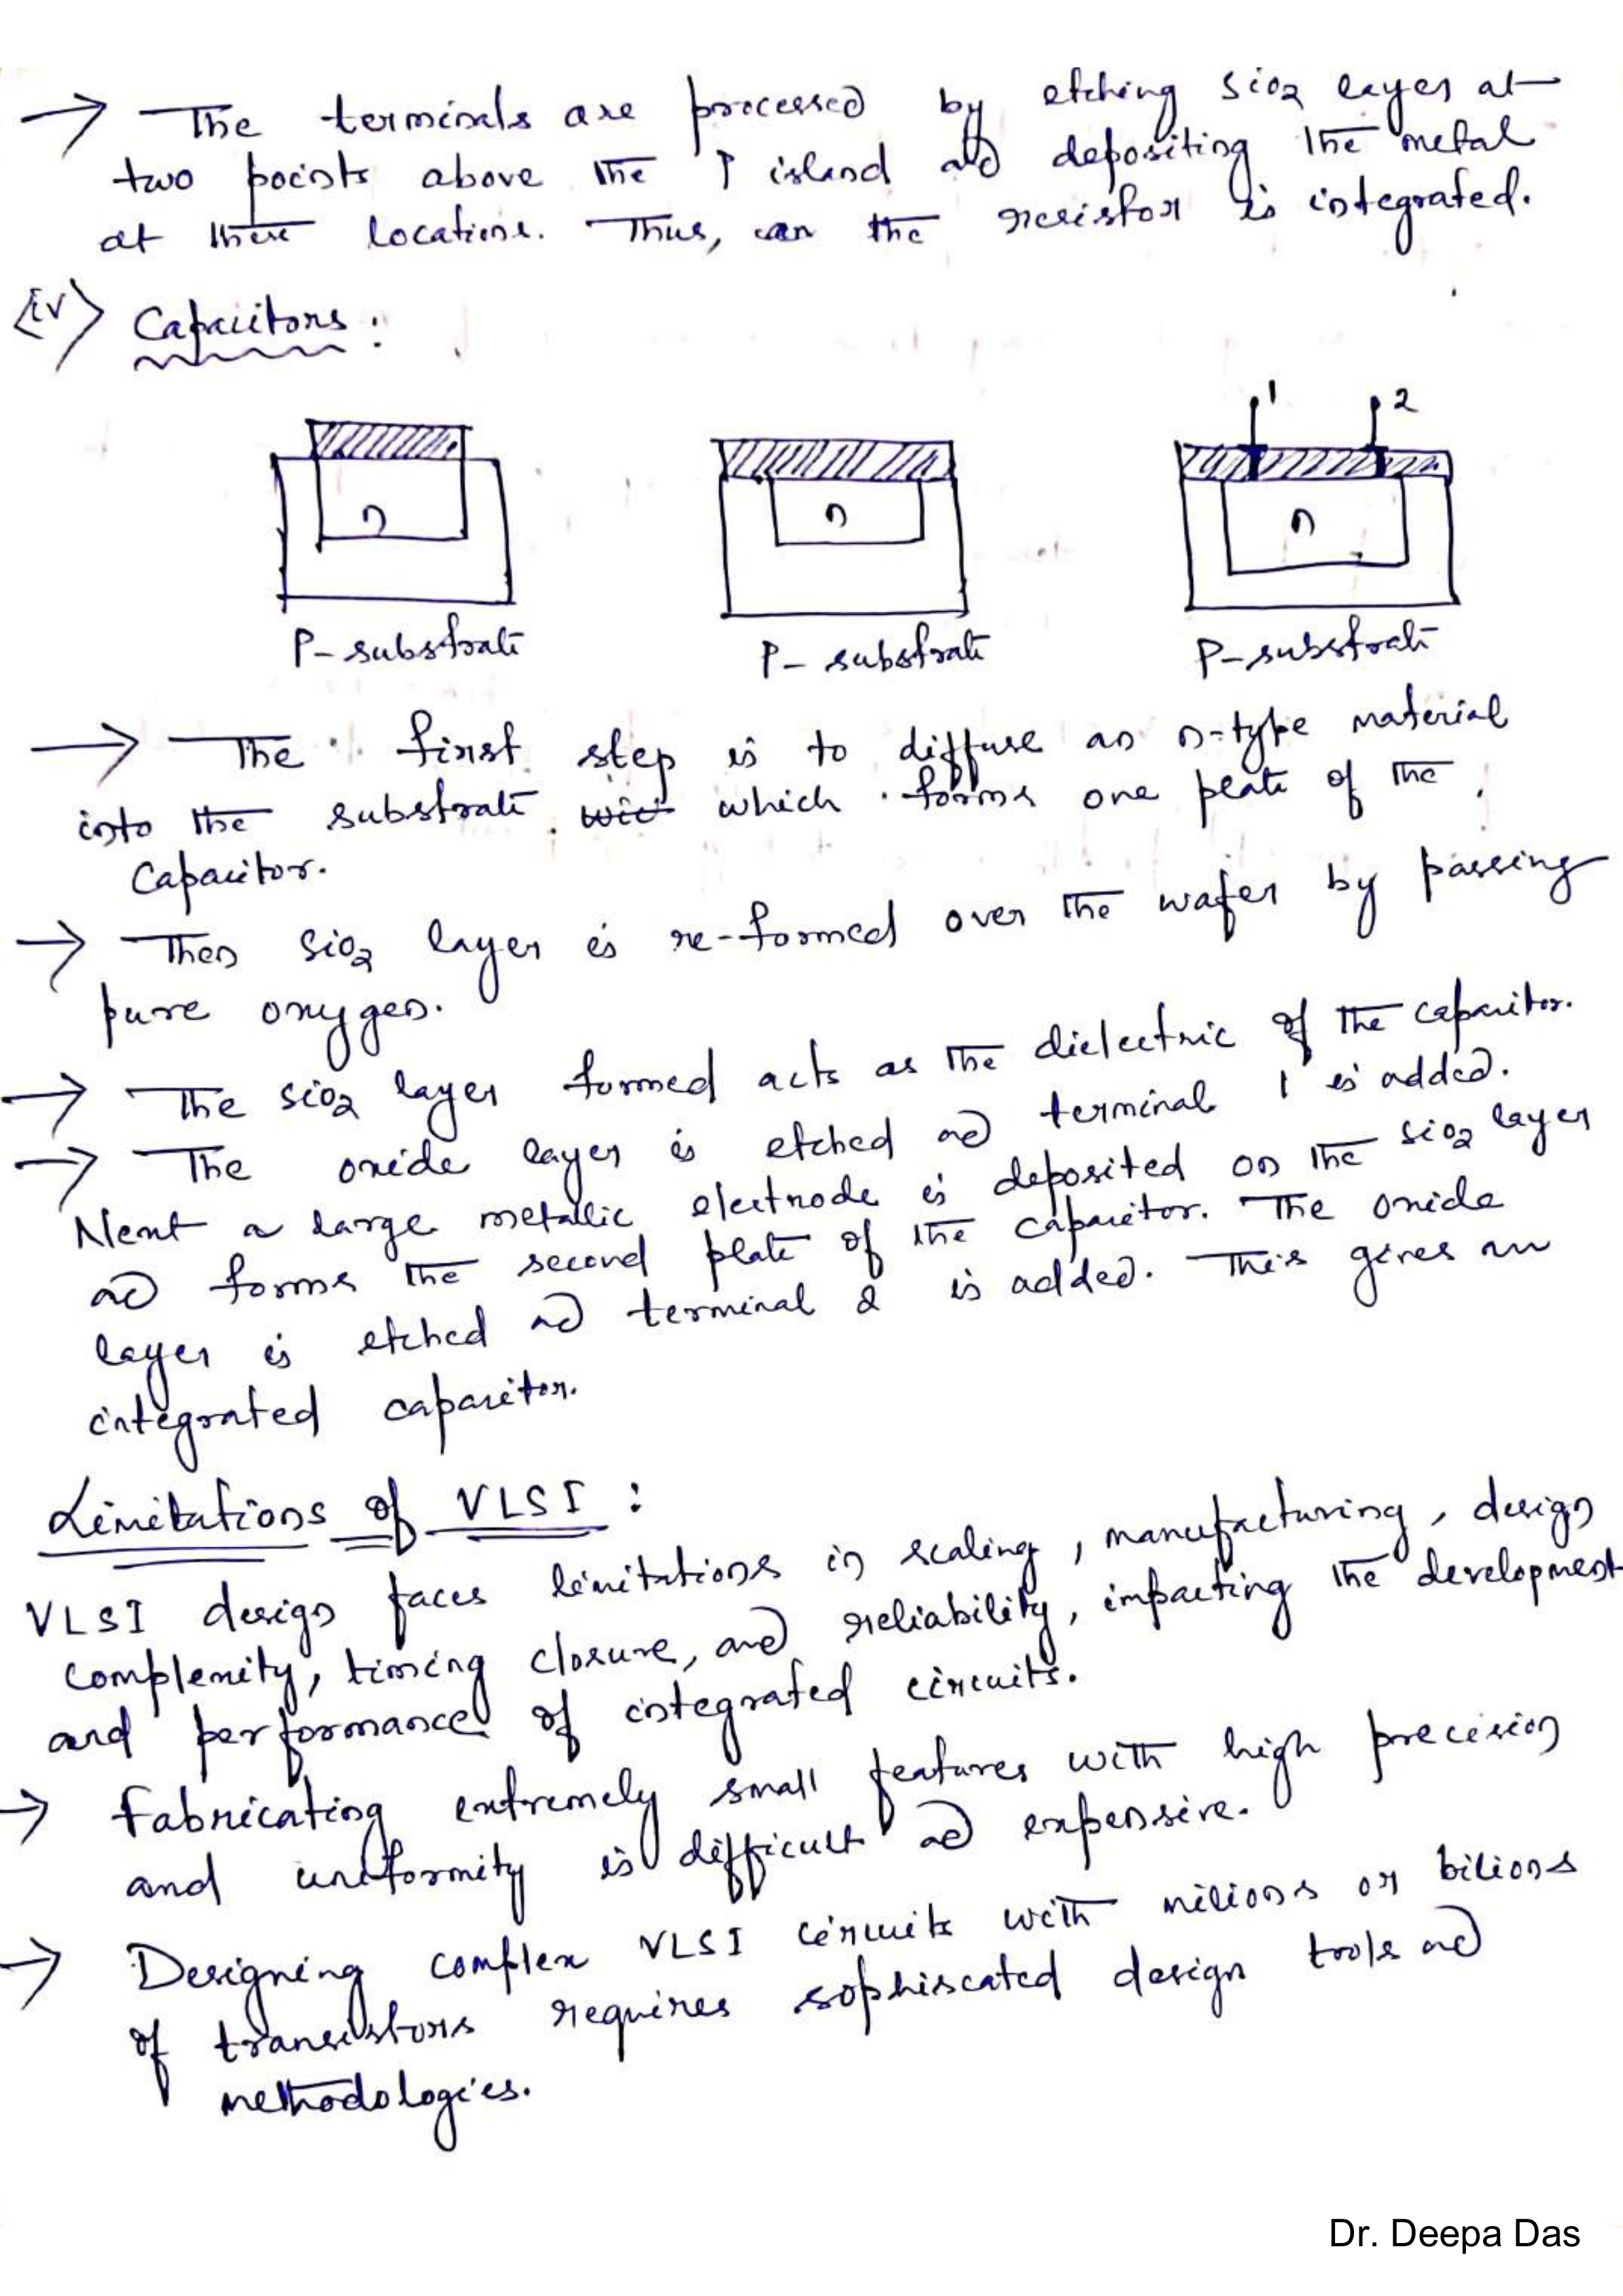 → The terminals are processed by etching SiO2 layer at
two points above the P island and depositing the metal
at these locations. Thus, can the resistor is integrated.
(iv) Capacitors :
1 2
n n n
P-substrate P-substrate P-substrate
→ The first step is to diffuse an n-type material
into the substrate. which forms one plate of the
Capacitor.
→ Then SiO2 layer is re-formed over the wafer by passing
pure oxygen.
→ The SiO2 layer formed acts as the dielectric of the capacitor.
→ The oxide layer is etched and terminal 1 is added.
Next a large metallic electrode is deposited on the SiO2 layer
and forms the second plate of the capacitor. The oxide
layer is etched and terminal 2 is added. This gives an
integrated capacitor.
Limitations of VLSI :
VLSI design faces limitations in scaling, manufacturing, design
complexity, timing closure, and reliability, impacting the development
and performance of integrated circuits.
→ Fabricating extremely small features with high precision
and uniformity is difficult and expensive.
→ Designing complex VLSI circuits with milions or bilions
of transistors requires sophiscated design tools and
methodologies.
Dr. Deepa Das